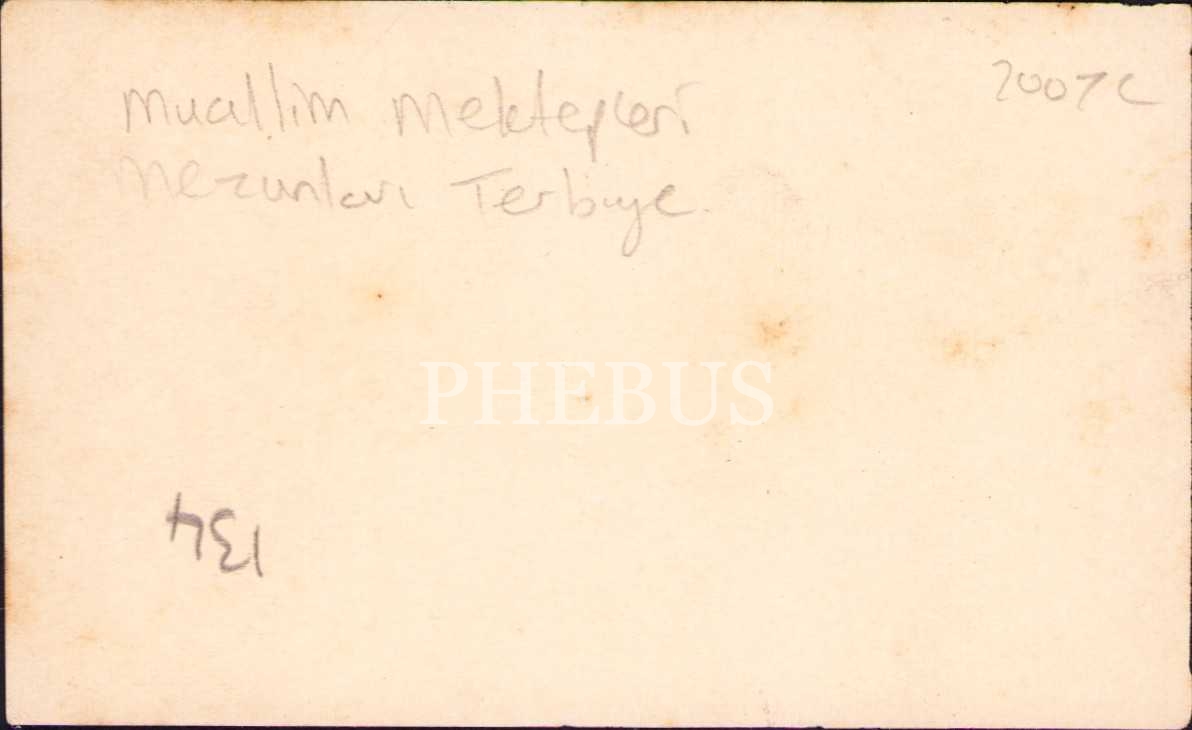 Muallim Mektepleri
Mezunları Terbiye
200TL
PHEBUS
134